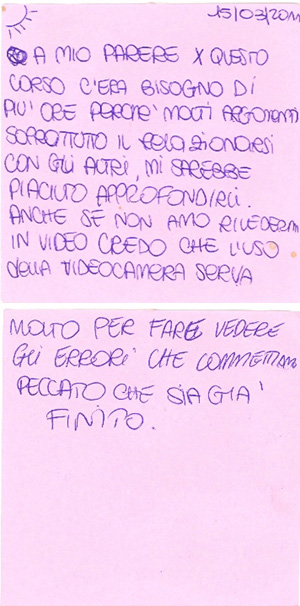 15/03/2011
A MIO PARERE X QUESTO
CORSO C'ERA BISOGNO DI
PIU' ORE PERCHE' MOLTI ARGOMENTI
SOPRATTUTTO IL RELAZIONARSI
CON GLI ALTRI, MI SAREBBE
PIACIUTO APPROFONDIRLI.
ANCHE SE NON AMO RIVEDERMI
IN VIDEO CREDO CHE L'USO
DELLA VIDEOCAMERA SERVA
MOLTO PER FARE VEDERE
GLI ERRORI CHE COMMETTIAMO
PECCATO CHE SIA GIA'
FINITO.